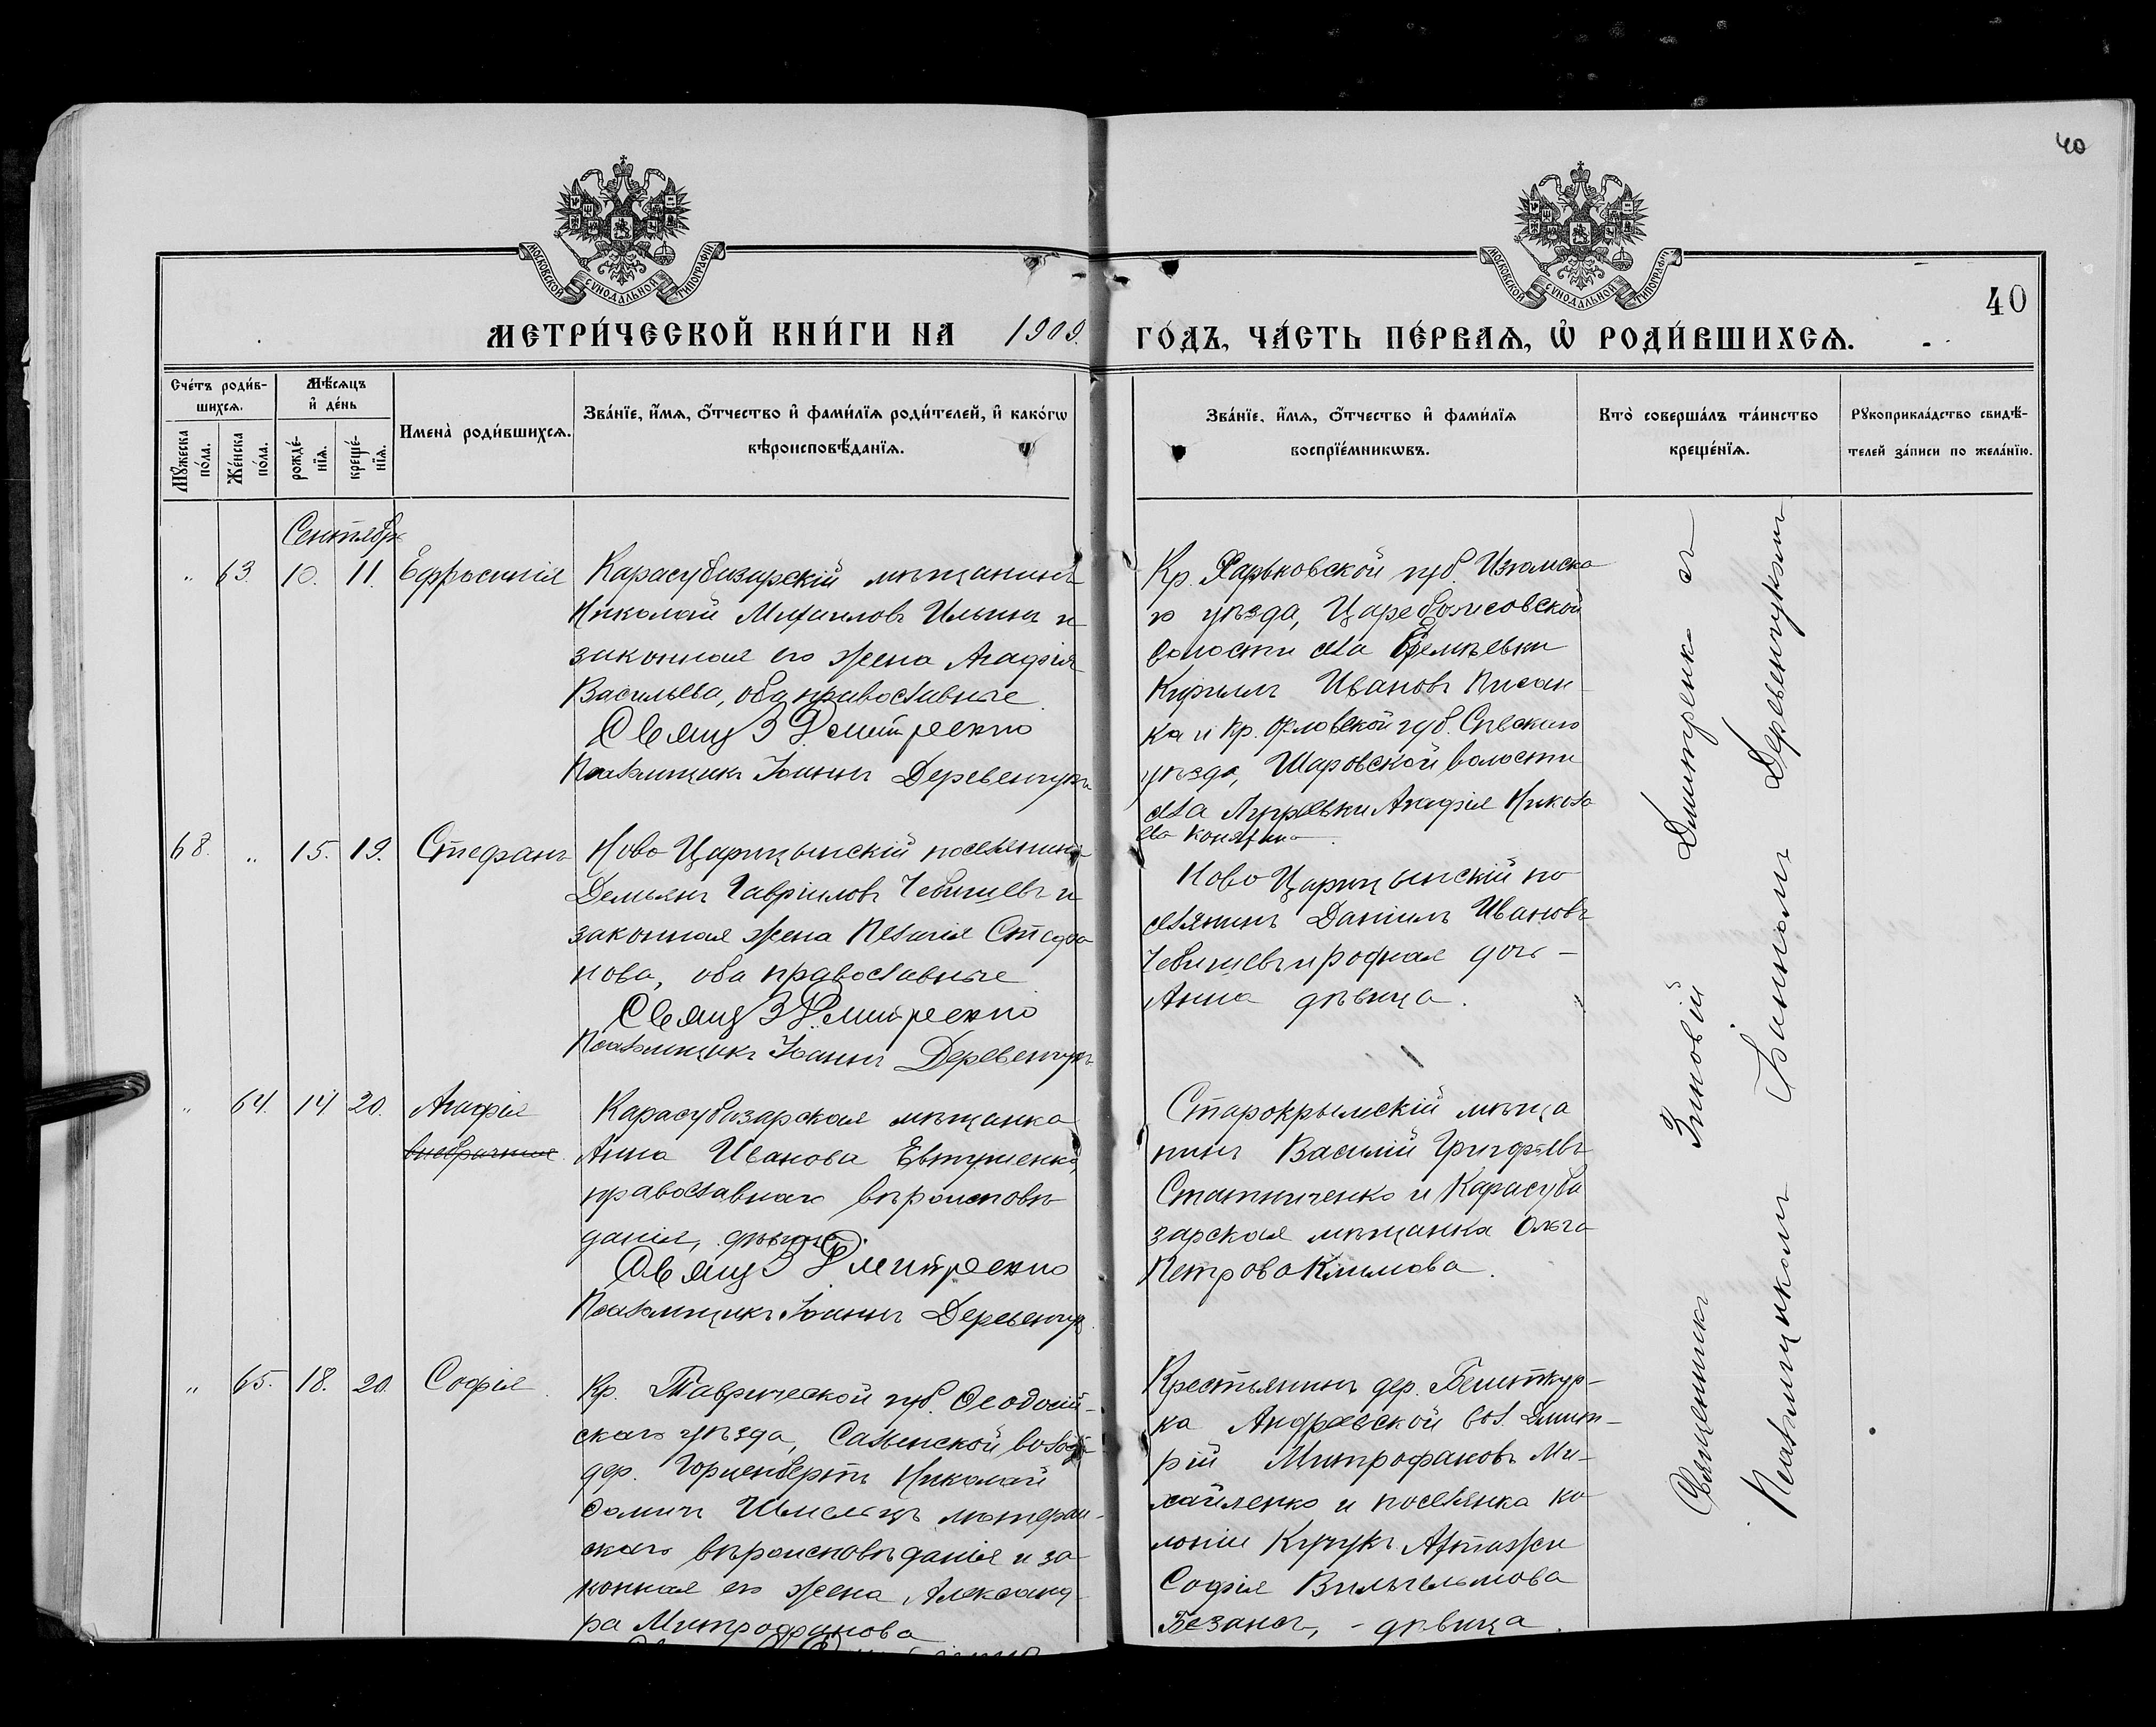 40
40
МОСКОВСКОЙ СѴНОДАЛЬНОЙ ТИПОГРАФІИ
МОСКОВСКОЙ СѴНОДАЛЬНОЙ ТИПОГРАФІИ
МЕТРИ́ЧЕСКОЙ КНИ́ГИ НА 1909. ГО́ДЪ, ЧА́СТЬ ПЕ́РВАѦ, Ѡ҆ РОДИ́ВШИХСѦ.
Сче́тъ роди́в-
шихсѧ.
Мꙋ́жеска
по́ла.
Же́нска
по́ла.
Мѣ́сѧцъ
и҆ де́нь
рожде́-
нїѧ.
креще́-
нїѧ.
Имена̀ роди́вшихсѧ.
Зва́нїе, и҆́мѧ, ѻ҆́тчество и҆ фами́лїѧ роди́телей, и҆ како́гѡ
вѣроисповѣ́данїѧ.
Зва́нїе, и҆́мѧ, ѻ҆́тчество и҆ фами́лїѧ
воспрїе́мникѡвъ.
Кто̀ соверша́лъ та́инство
креще́нїѧ.
Рꙋкоприкла́дство свидѣ́-
телей за́писи по жела́нїю.
Сентябрь
„ 63. 10. 11. Ефросинія
Карасубазарскій мѣщанинъ
Николай Михаиловъ Ильинъ и
законная его жена Агафія
Васильева, оба православные
Свящ З Дмитренко
Псаломщикъ Іоаннъ Деревенчукъ
Кр. Харьковской губ. Изюмска
го уѣзда, Царевоборисовской
волости села
Кириллъ Ивановъ Писан-
ка и Кр. Орловской губ. Сѣвскаго
уѣзда, Шаровской волости
села Агафія Никола
ева
68. „ 15. 19. Стефанъ
Ново Царицынскій поселянинъ
Демьянъ Гавріиловъ и
законная жена Пелагія Стефа
нова, оба православные
Свящ З Дмитренко
Псаломщикъ Іоаннъ Деревенчукъ
Ново Царицынскій по
селянинъ Даніилъ Ивановъ
и родная дочь –
Анна дѣвица.
„ 64. 14 20. Агафія
внебрачная
Карасубазарская мѣщанка
Анна Иванова Евтушенко,
православнаго вѣроисповѣ
данія, дѣвица.
Свящ З Дмитренко
Псаломщикъ Іоаннъ Деревенчук
Старокрымскій мѣща
нинъ Василій Григорьевъ
Статниченко и Карасуба
зарская мѣщанка Ольга
Петрова Климова.
„ 65. 18. 20. Софія
Кр. Таврической губ. Ѳеодосій-
скаго уѣзда, Салынской волости
дер. Николай
Шмельцъ лютеран-
скаго вѣроисповѣданія и за
конная его жена Александ-
ра Митрофанова
Крестьянинъ дер.
ка Андреевской вол. Дмит-
рій Митрофановъ Ми-
хайленко и поселянка ко
лоніи Кучукъ
Софія Вильгельмова
– дѣвица.
Священникъ Зиновій Дмитренко съ
Псаломщикомъ Іоанномъ Деревенчукомъ